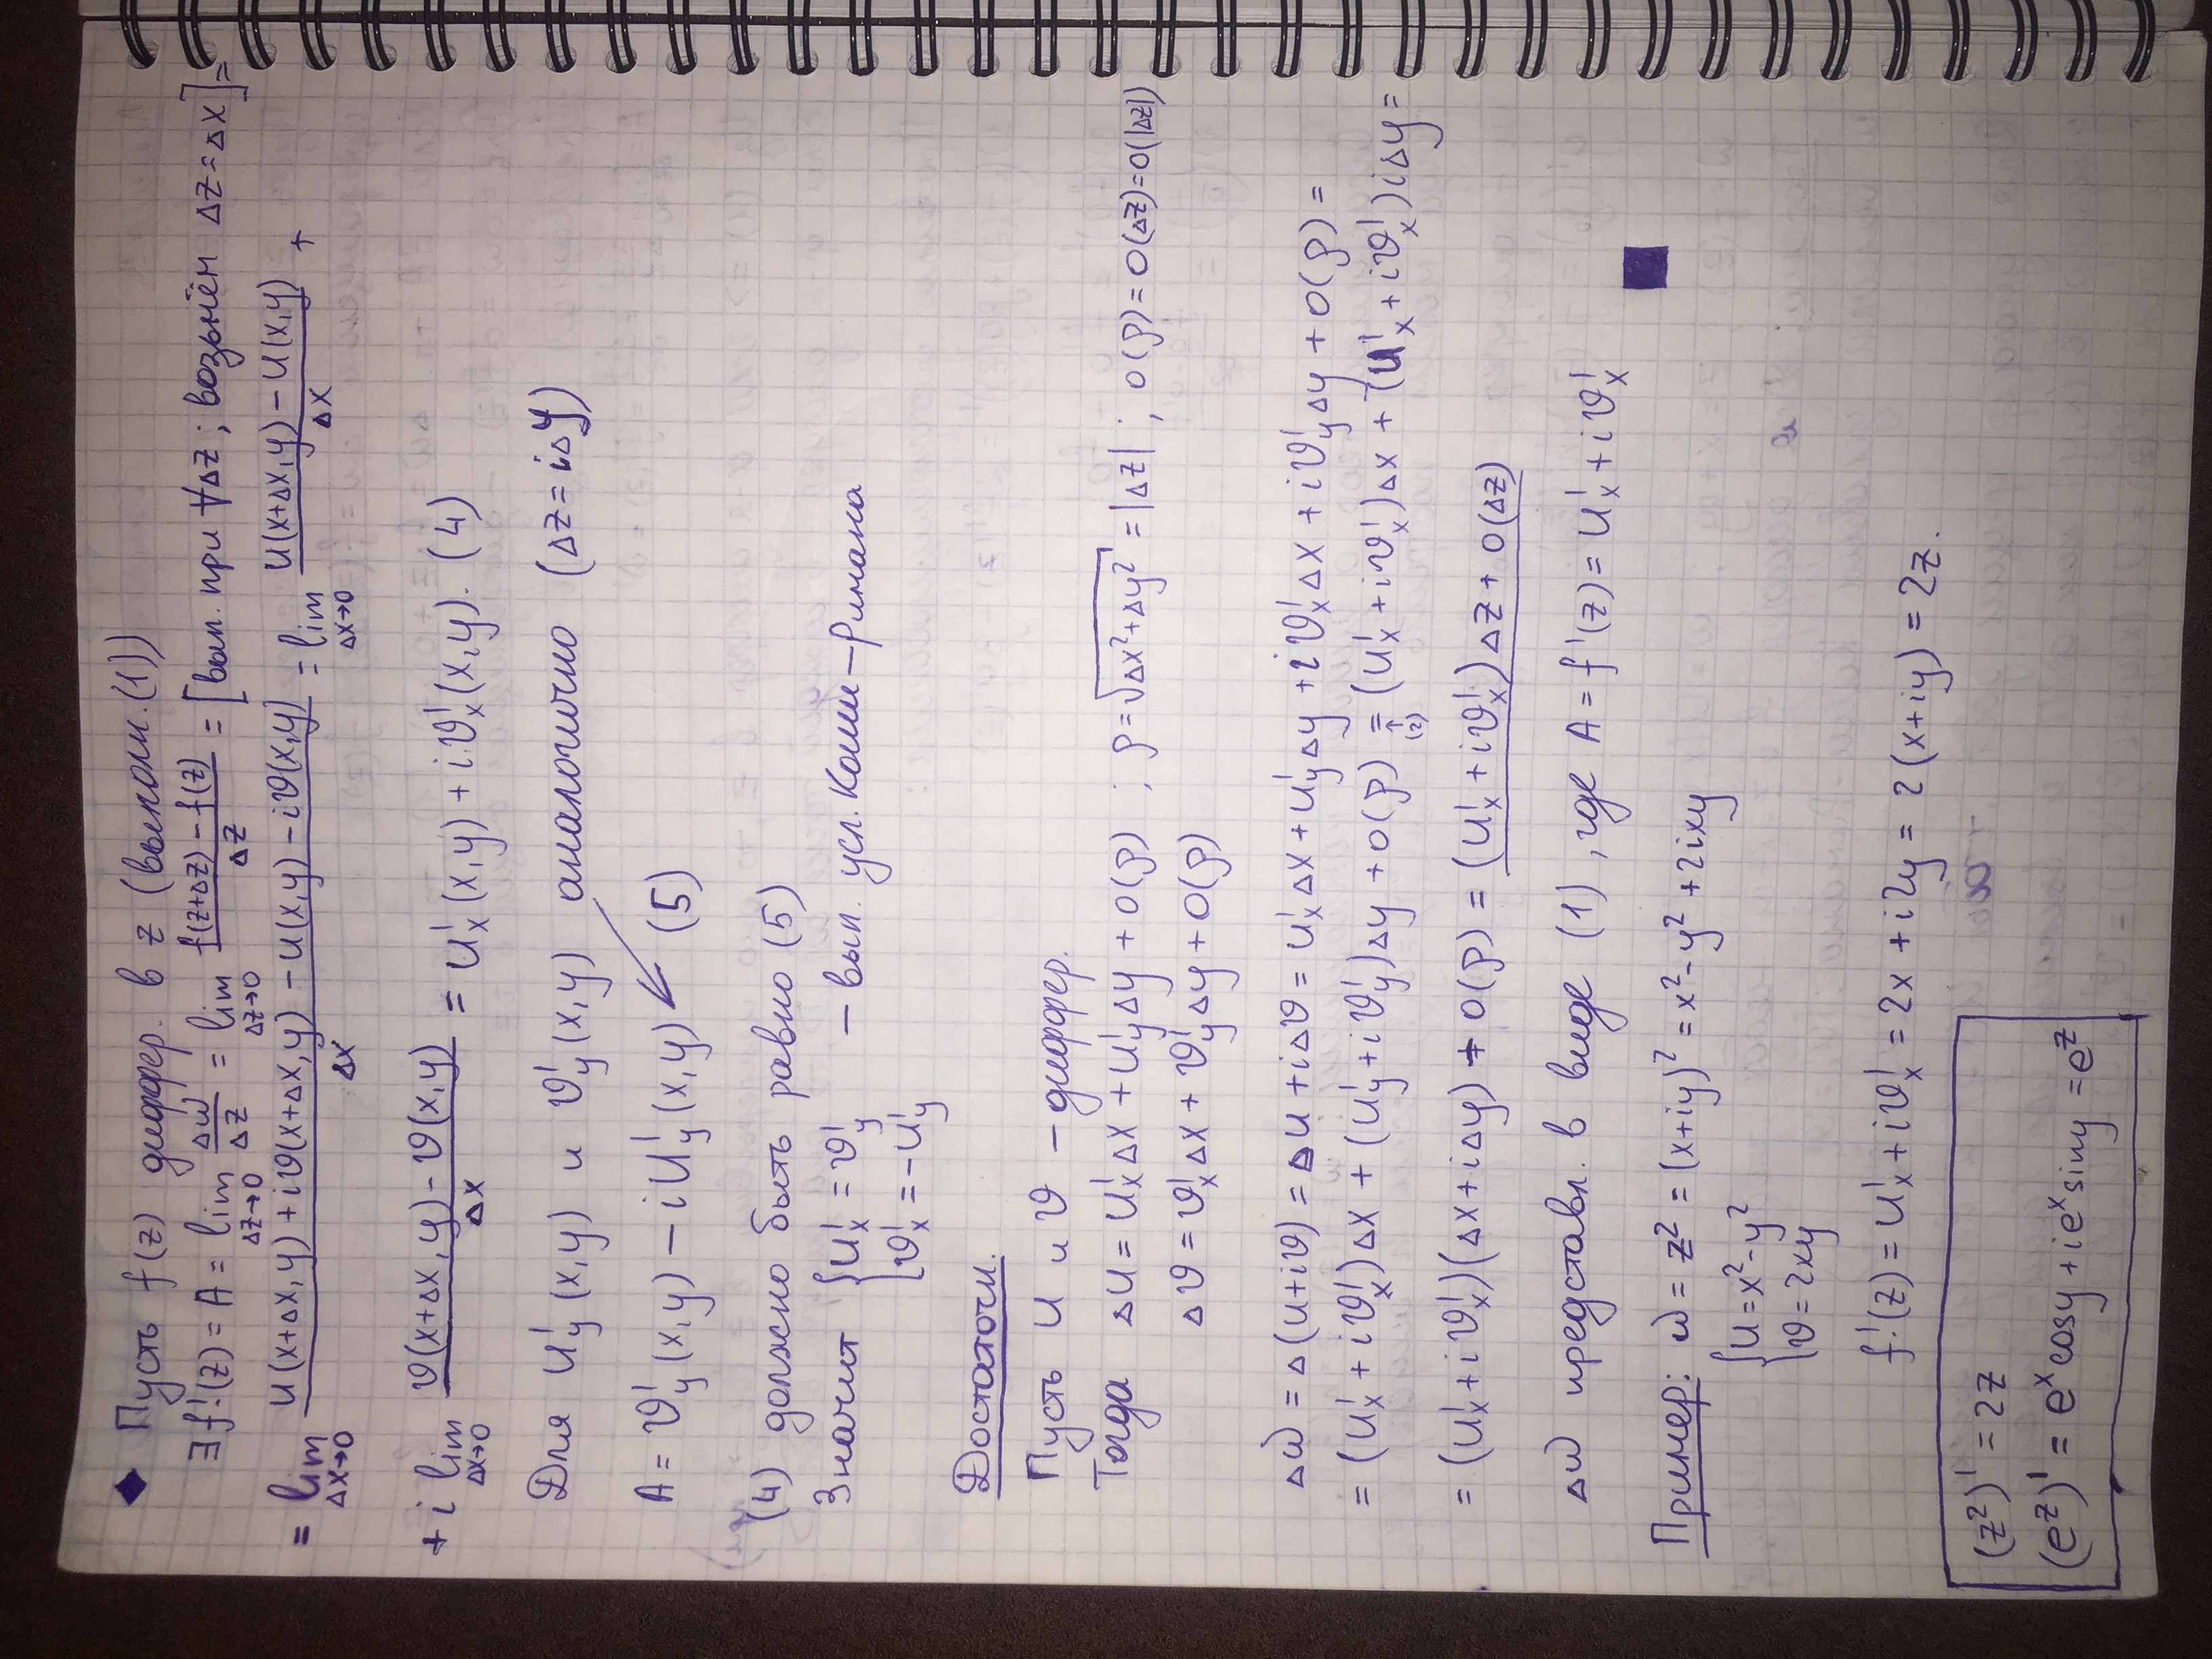 ◆ Пусть f(z) диффер. в z (выполн. (1))
∃ f'(z) = A = lim_{Δz→0} Δw/Δz = lim_{Δz→0} (f(z+Δz) − f(z))/Δz = [вып. при ∀Δz ; возьмём Δz = Δx] =
= lim_{Δx→0} (u(x+Δx, y) + iϑ(x+Δx, y) − u(x,y) − iϑ(x,y))/Δx = lim_{Δx→0} (u(x+Δx, y) − u(x,y))/Δx +
+ i lim_{Δx→0} (ϑ(x+Δx, y) − ϑ(x,y))/Δx = u'_x(x,y) + iϑ'_x(x,y). (4)
Для u'_y(x,y) и ϑ'_y(x,y) аналогично (Δz = iΔy)
A = ϑ'_y(x,y) − iu'_y(x,y) (5)
(4) должно быть равно (5)
Значит { u'_x = ϑ'_y – вып. усл. Коши–Римана
ϑ'_x = −u'_y
Достаточн.
Пусть u и ϑ – диффер.
Тогда Δu = u'_xΔx + u'_yΔy + o(ρ) ; ρ = √(Δx²+Δy²) = |Δz| ; o(ρ) = o(Δz) = o(|Δz|)
Δϑ = ϑ'_xΔx + ϑ'_yΔy + o(ρ)
Δw = Δ(u+iϑ) = Δu + iΔϑ = u'_xΔx + u'_yΔy + iϑ'_xΔx + iϑ'_yΔy + o(ρ) =
= (u'_x + iϑ'_x)Δx + (u'_y + iϑ'_y)Δy + o(ρ) = (u'_x + iϑ'_x)Δx + (u'_x + iϑ'_x)iΔy =
↑
(2)
= (u'_x + iϑ'_x)(Δx + iΔy) + o(ρ) = (u'_x + iϑ'_x)Δz + o(Δz)
Δw представл. в виде (1), где A = f'(z) = u'_x + iϑ'_x
■
Пример: w = z² = (x+iy)² = x² − y² + 2ixy
{ u = x² − y²
ϑ = 2xy
f'(z) = u'_x + iϑ'_x = 2x + i2y = 2(x+iy) = 2z.
(z²)' = 2z
(e^z)' = e^x cosy + ie^x siny = e^z